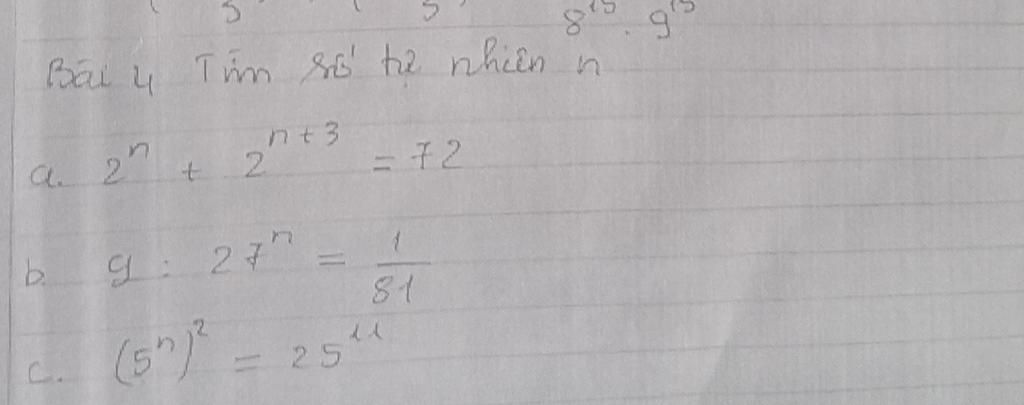 5 5 8¹⁵ . 9¹⁵
Bài 4 Tìm số tự nhiên n
a. 2ⁿ + 2ⁿ⁺³ = 72
b. 9 : 27ⁿ = 1/81
c. (5ⁿ)² = 25¹¹